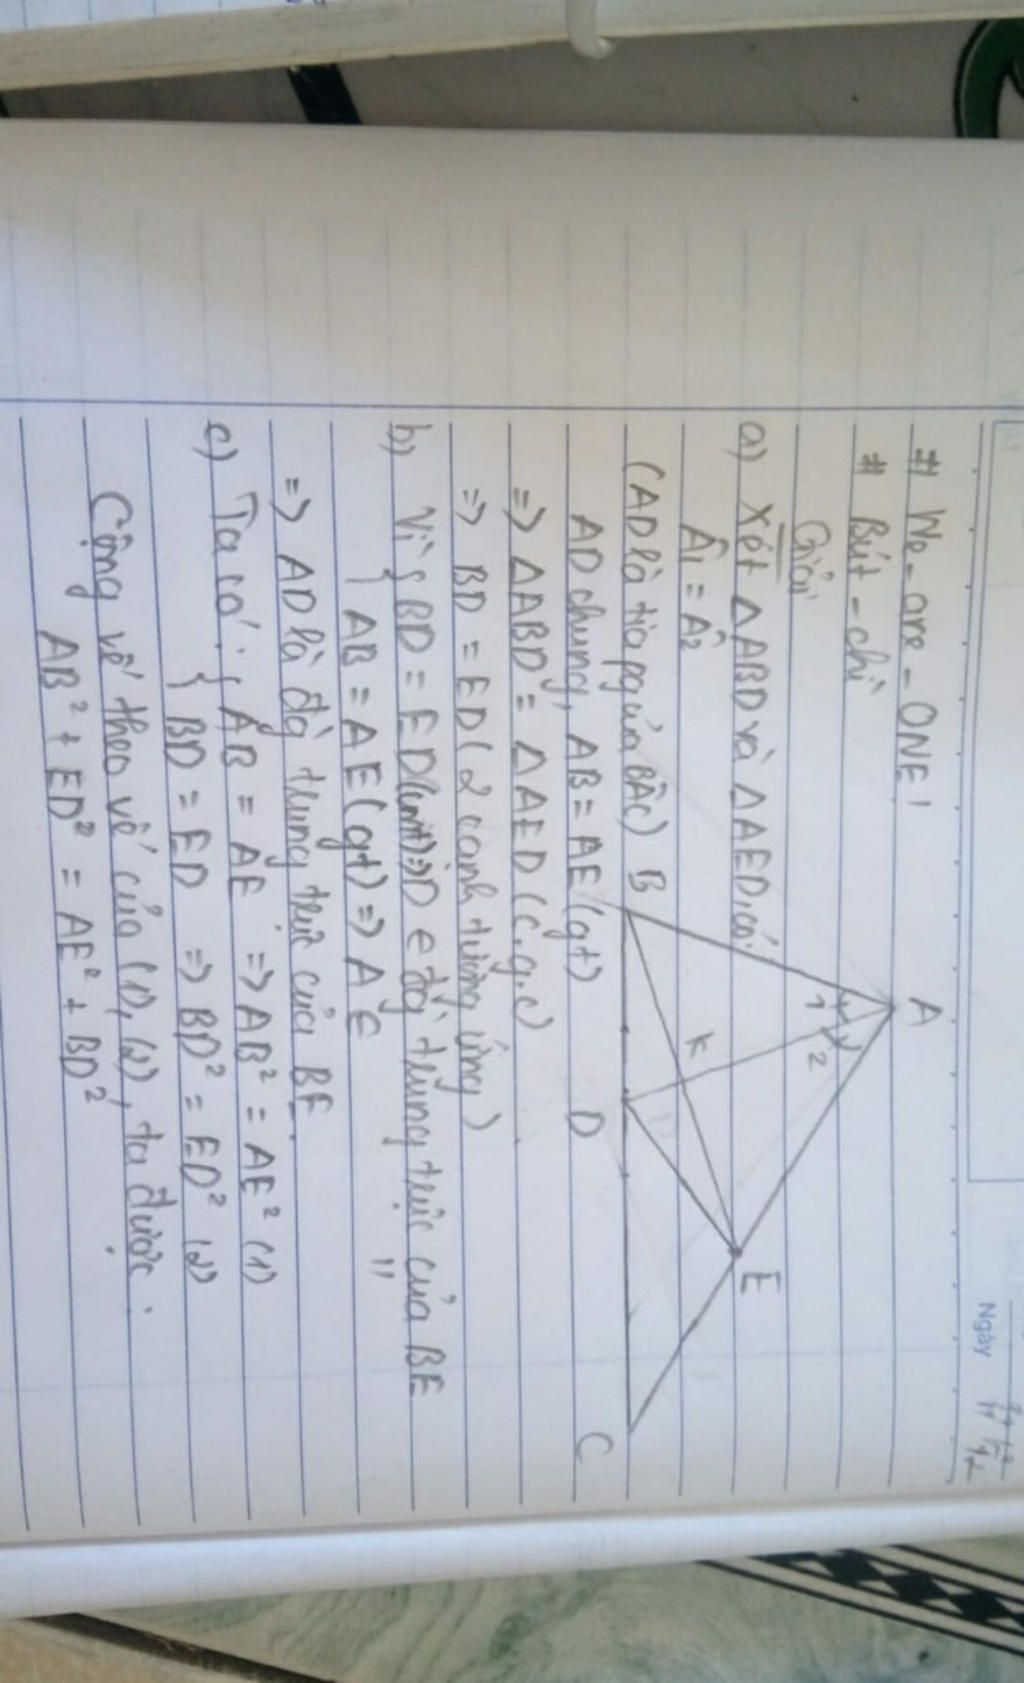 Ngày
# We-are-ONE!
# Bút-chì
Giải
a) Xét △ABD và △AED, có:
Â1 = Â2
(AD là tia pg của BÂC)
AD chung, AB = AE (gt)
=> △ABD = △AED (c.g.c)
=> BD = ED (2 cạnh tương ứng)
b) Vì { BD = ED (cmt) => D ∈ đg trung trực của BE
AB = AE (gt) => A ∈ "
=> AD là đg trung trực của BE.
c) Ta có: { AB = AE => AB² = AE² (1)
BD = ED => BD² = ED² (2)
Cộng vế theo vế của (1), (2), ta được:
AB² + ED² = AE² + BD²
A
1 2
E
K
B
D
C